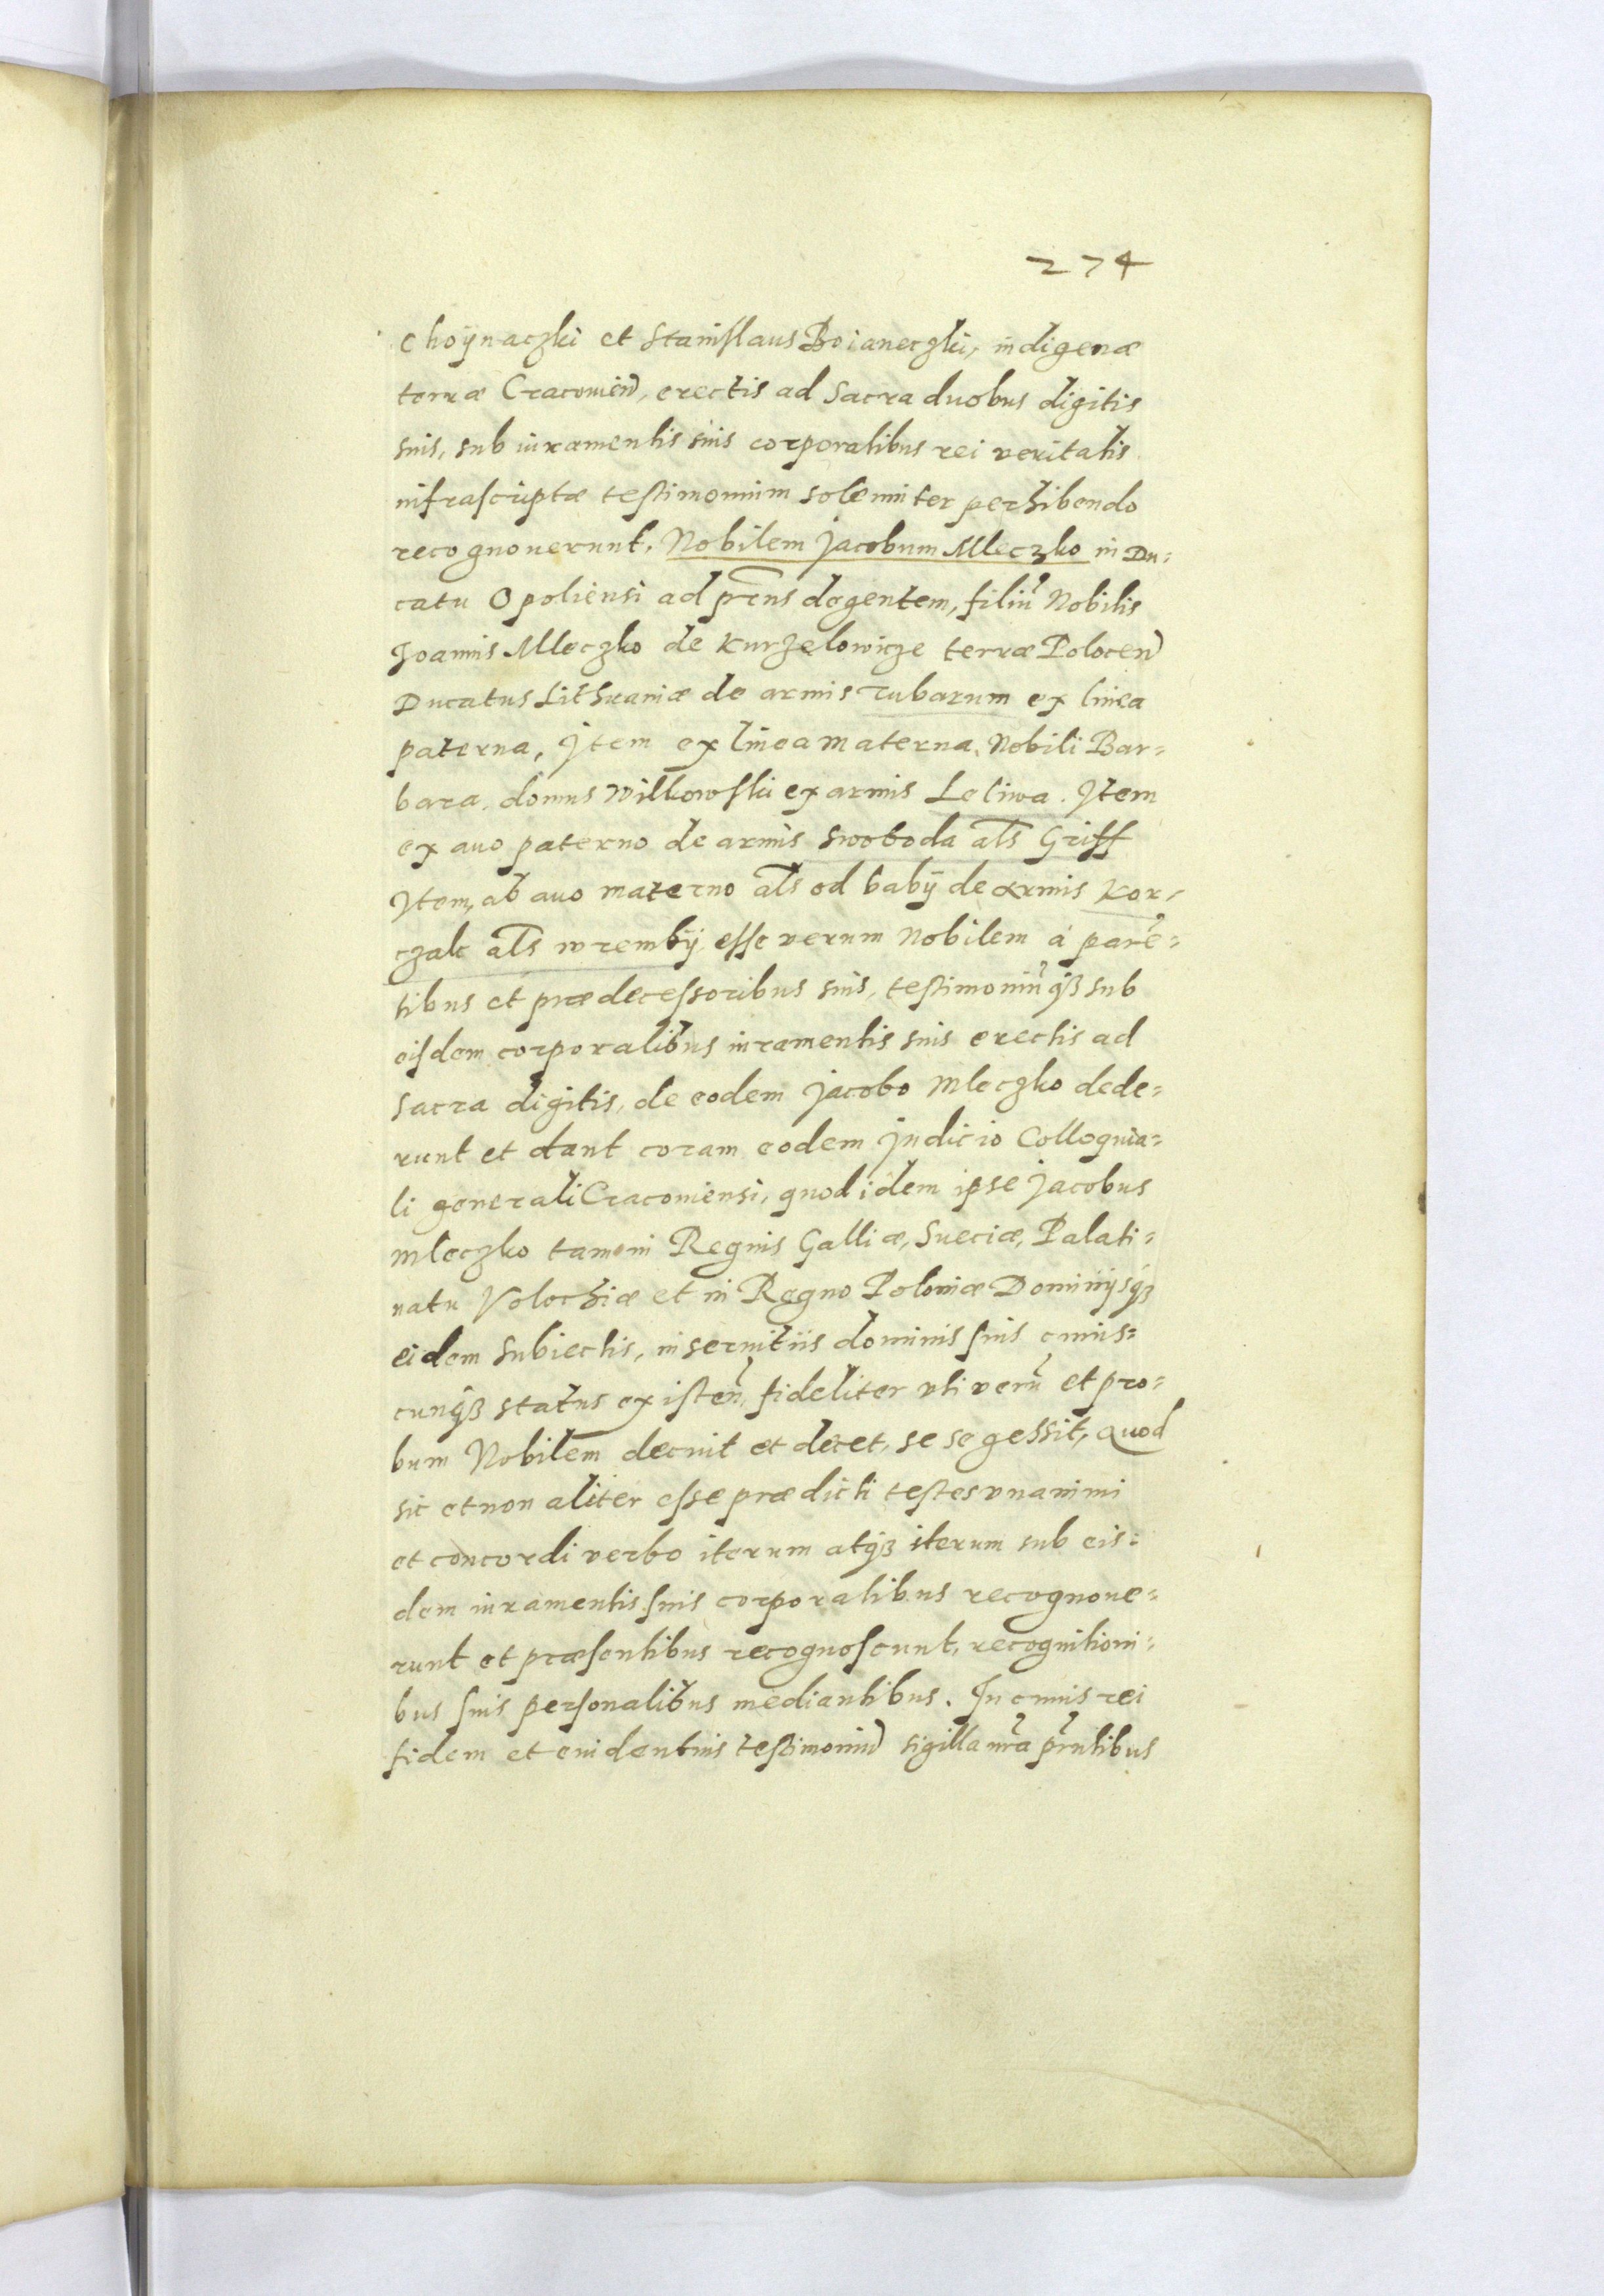 274
Choÿnaczki et Stanislaus Boianeczki, indigenæ
terræ Cracouien, erectis ad Sacra duobus digitis
suis, sub iuramentis suis corporalibus rei veritatis
infrascriptæ testimonium solemniter perhibendo
recognouerunt. Nobilem Jacobum Mleczko in Du=
catu Opoliensi ad prns degentem, filiu Nobilis
Joannis Mleczko de Kurzelowicze terræ Polocen
Ducatus Lithuaniæ de armis Tubarum ex linea
paterna, Jtem ex linea materna, Nobili Bar=
bara, domus Wilkowski ex armis Leliwa. Jtem
ex auo paterno de armis Swoboda als Griff
Jtem, ab auo materno als od babÿ de armis Kor=
czak als wrembÿ esse verum Nobilem á pare=
tibus et prædecessoribus suis, testimoniuqꝫ sub
eisdem corporalibus iuramentis suis erectis ad
Sacra digitis, de eodem Jacobo Mleczko dede=
runt et dant coram eodem Judicio Colloquia=
li generali Cracouiensi, quod idem ipse Jacobus
Mleczko tam in Regnis Galliæ, Sueciæ, Palati=
natu Volochiæ et in Regno Poloniæ Dominÿsqꝫ
eidem Subiectis, in seruitiis dominis suis cuius=
cunqꝫ status existen, fideliter vti veru et pro=
bum Nobilem decuit et decet, se se gessit, Quod
sic et non aliter esse prædicti testes vnanimi
et concordi verbo iterum atqꝫ iterum sub eis=
dem iuramentis suis corporalibus recognoue=
runt et præsentibus recognoscunt, recognitioni=
bus suis personalibus mediantibus. In cuius rei
fidem et euidentius testimoniu sigilla nra prntibus